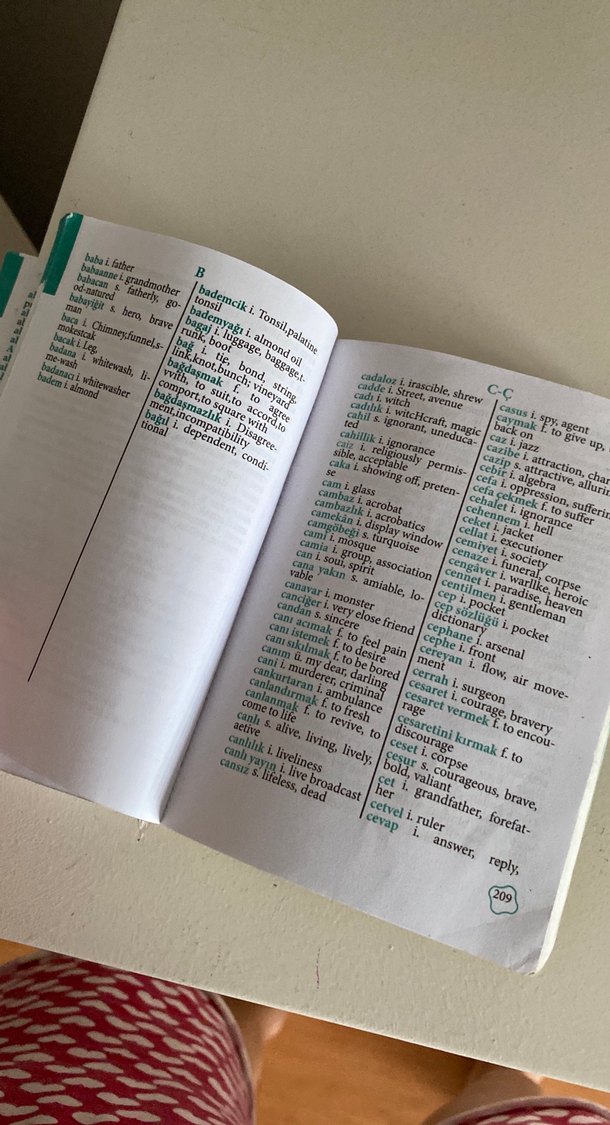 B
baba i. father
babaanne i. grandmother
babacan s. fatherly, go-
od-natured
babayiğit s. hero, brave
man
baca i. Chimney,funnel,s-
mokestcak
bacak i. Leg,
badana i. whitewash, li-
me-wash
badanacı i. whitewasher
badem i. almond
bademcik i. Tonsil,palatine
tonsil
bademyağı i. almond oil
bagaj i. luggage, baggage,t-
runk, boot
bağ i. tie, bond, string,
link,knot,bunch; vineyard
bağdaşmak f. to agree
vvith, to suit,to accord,to
comport,to square with
bağdaşmazlık i. Disagree-
ment,incompatibility
bağıl i. dependent, condi-
tional
C-Ç
cadaloz i. irascible, shrew
cadde i. Street, avenue
cadı i. witch
cadılık i. witcHcraft, magic
cahil s. ignorant, uneduca-
ted
cahillik i. ignorance
caiz i. religiously permis-
sible, acceptable
caka i. showing off, preten-
se
cam i. glass
cambaz i. acrobat
cambazlık i. acrobatics
camekân i. display window
camgöbeği s. turquoise
cami i. mosque
camia i. group, association
can i. soul, spirit
cana yakın s. amiable, lo-
vable
canavar i. monster
canciğer i. very close friend
candan s. sincere
canı acımak f. to feel pain
canı istemek f. to desire
canı sıkılmak f. to be bored
canım ü. my dear, darling
cani i. murderer, criminal
cankurtaran i. ambulance
canlandırmak f. to fresh
canlanmak f. to revive, to
come to life
canlı s. alive, living, lively,
aetive
canlılık i. liveliness
canlı yayın i. live broadcast
cansız s. lifeless, dead
casus i. spy, agent
caymak f. to give up,
back on
caz i. jazz
cazibe i. attraction,
cazip s. attractive,
cebir i. algebra
cefa i. oppression,
cefa çekmek f. to suffer
cehalet i. ignorance
cehennem i. hell
ceket i. jacket
cellat i. executioner
cemiyet i. society
cenaze i. funeral, corpse
cengâver i. warllke, heroic
cennet i. paradise, heaven
centilmen i. gentleman
cep i. pocket
cep sözlüğü i. pocket
dictionary
cephane i. arsenal
cephe i. front
cereyan i. flow, air move-
ment
cerrah i. surgeon
cesaret i. courage, bravery
cesaret vermek f. to encou-
rage
cesaretini kırmak f. to
discourage
ceset i. corpse
cesur s. courageous, brave,
bold, valiant
cet i. grandfather, forefat-
her
cetvel i. ruler
cevap i. answer, reply,
209